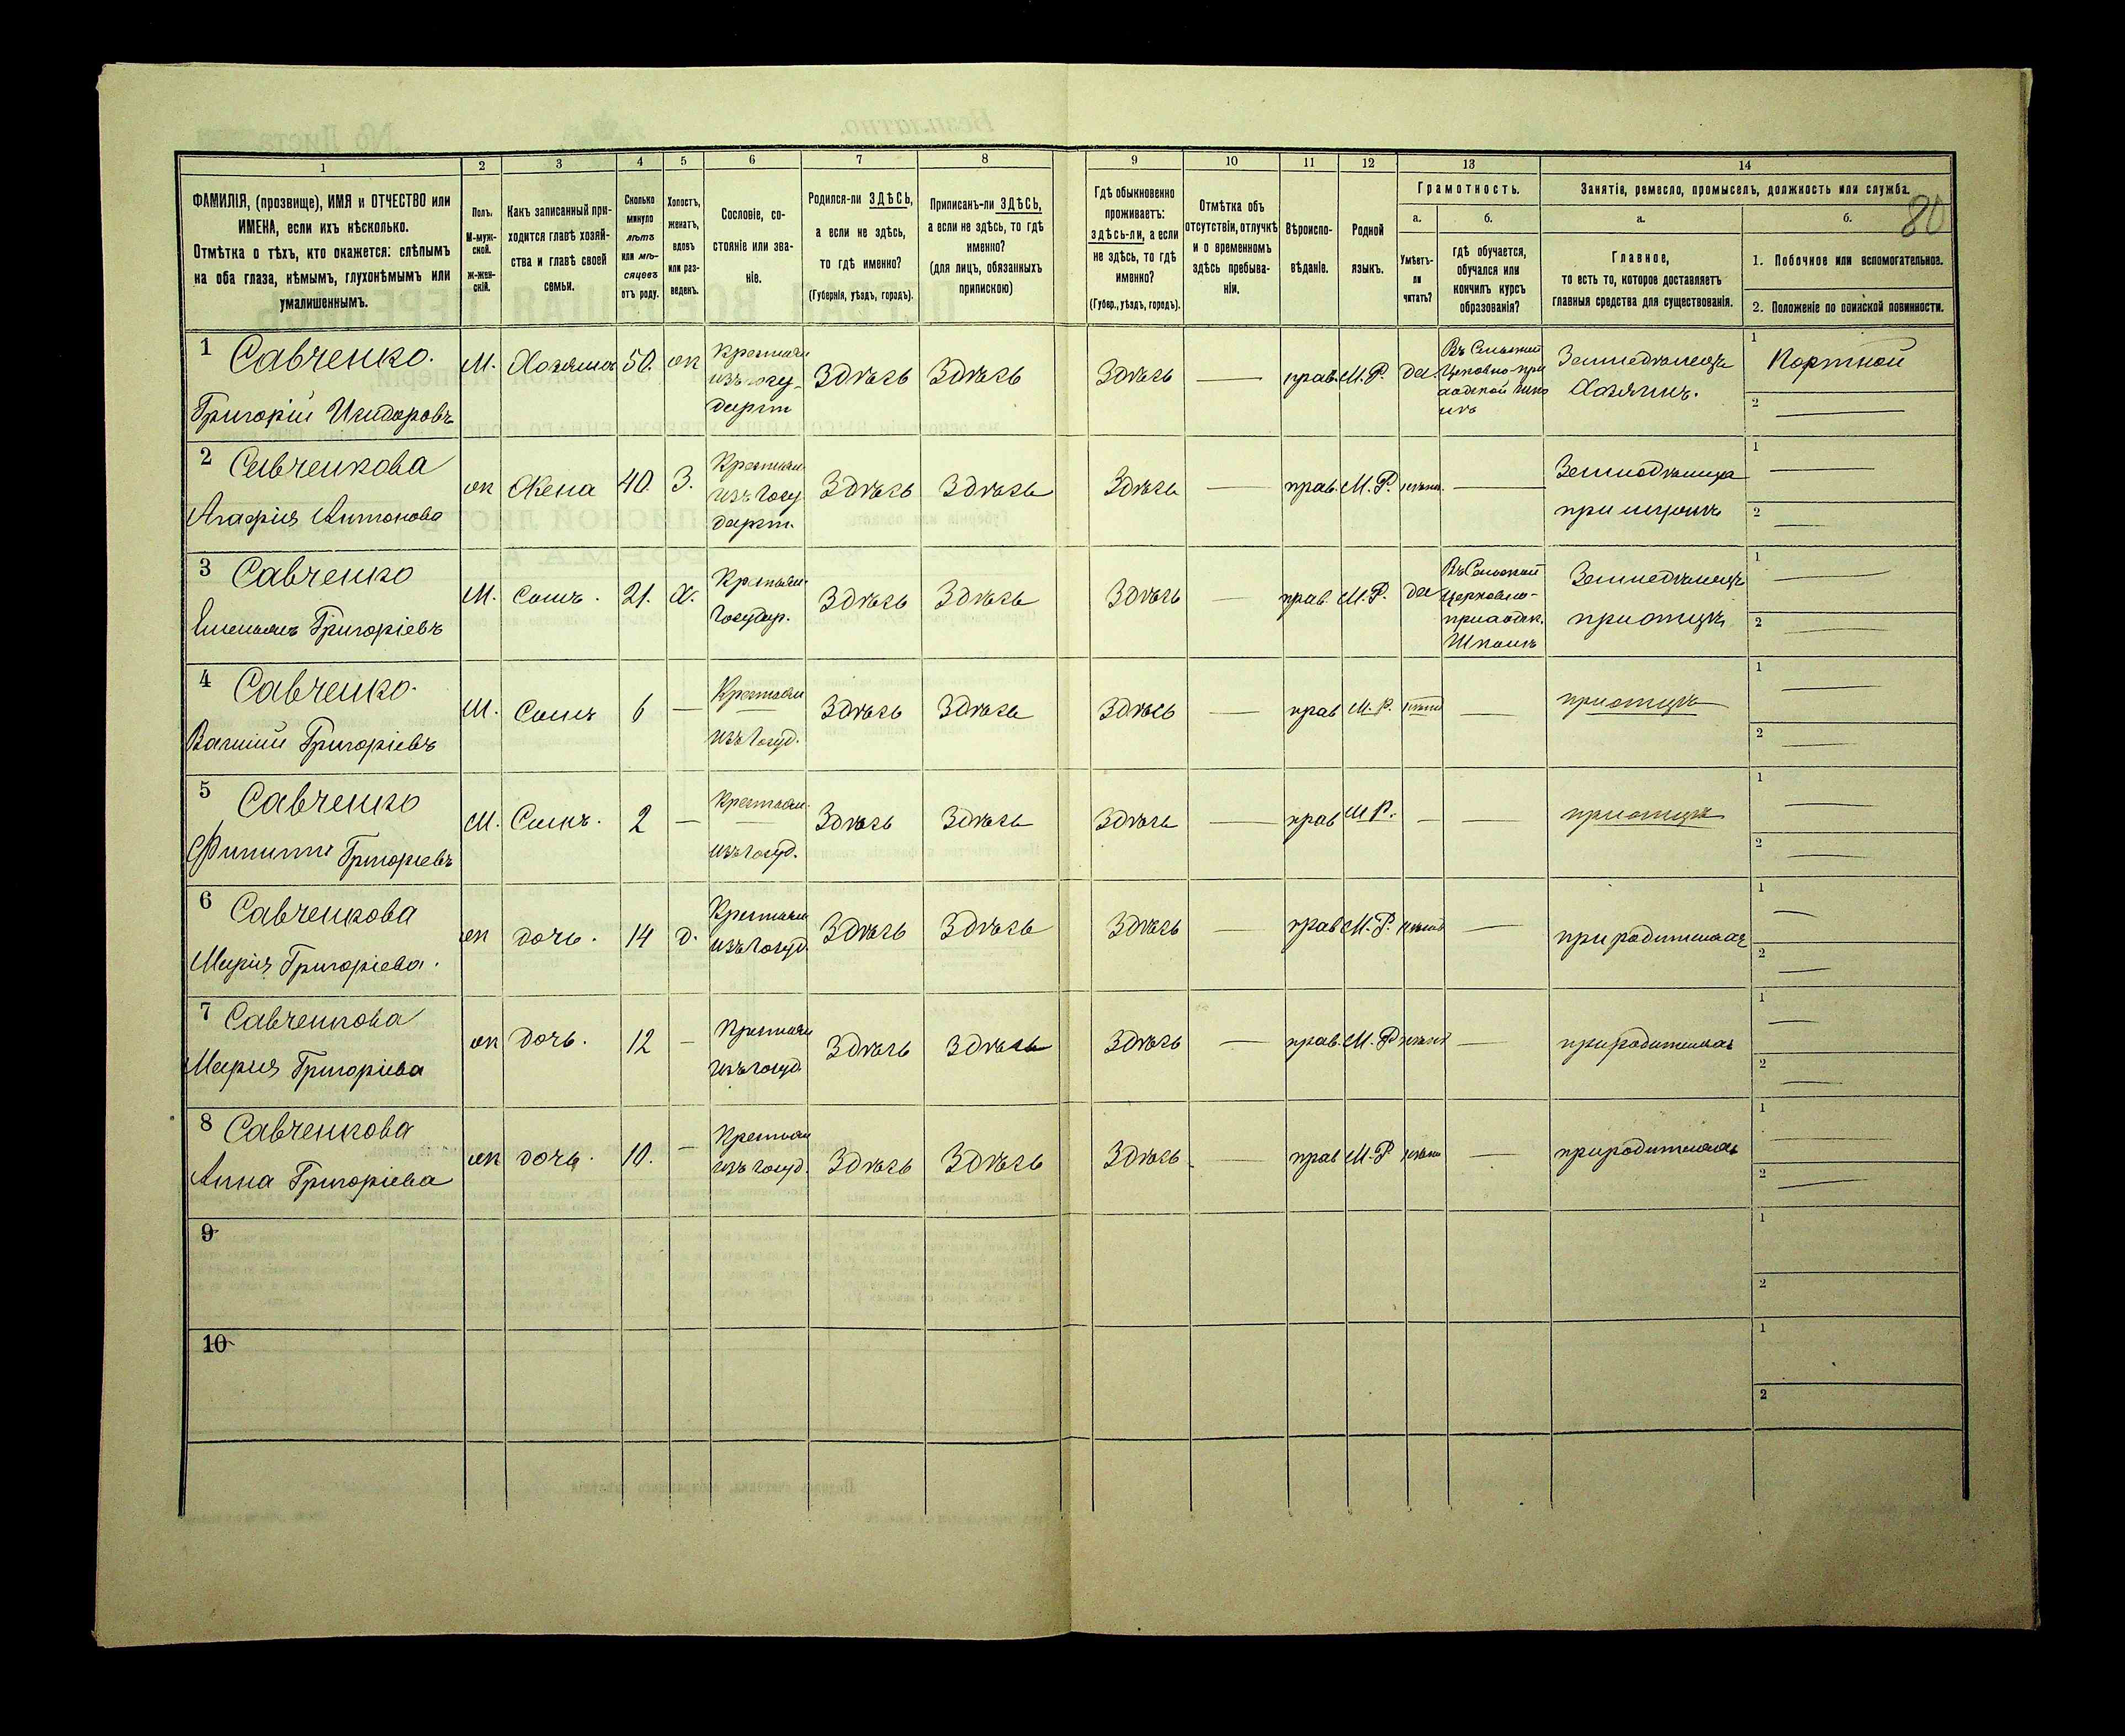 80
1
2
3
4
5
6
7
8
9
10
11
12
13
14
ФАМИЛІЯ, (прозвище), ИМЯ и ОТЧЕСТВО или
ИМЕНА, если ихъ нѣсколько.
Отмѣтка о тѣхъ, кто окажется: слѣпымъ
на оба глаза, нѣмымъ, глухонѣмымъ или
умалишеннымъ.
Полъ.
М-муж-
ской.
ж-жен-
скій.
Какъ записанный при-
ходится главѣ хозяй-
ства и главѣ своей
семьи.
Сколько
минуло
лѣтъ
или мѣ-
сяцевъ
отъ роду.
Холостъ,
женатъ,
вдовъ
или раз-
веденъ.
Сословіе, со-
стояніе или зва-
ніе.
Родился-ли ЗДѢСЬ,
а если не здѣсь,
то гдѣ именно?
(Губернія, уѣздъ, городъ).
Приписанъ-ли ЗДѢСЬ,
а если не здѣсь, то гдѣ
именно?
(для лицъ, обязанныхъ
припискою)
Гдѣ обыкновенно
проживаетъ:
здѣсь-ли, а если
не здѣсь, то гдѣ
именно?
(Губер., уѣздъ, городъ).
Отмѣтка объ
отсутствіи, отлучкѣ
и о временномъ
здѣсь пребыва-
ніи.
Вѣроиспо-
вѣданіе.
Родной
языкъ.
Грамотность.
а.
Умѣетъ-
ли
читать?
б.
гдѣ обучается,
обучался или
кончилъ курсъ
образованія?
Занятіе, ремесло, промыселъ, должность или служба.
а.
Главное,
то есть то, которое доставляетъ
главныя средства для существованія.
б.
1. Побочное или вспомогательное.
2. Положеніе по воинской повинности.
1 Савченко.
Григорій Исидоровъ
М.
Хозяинъ
50.
ж
Крестьян
изъ госу-
дарст
Здѣсь
Здѣсь
Здѣсь
—
прав.
М. Р.
да.
Въ Сельской
Церковно-при
ходской школ
Земледѣлецъ
Хозяинъ.
1
Портной
2
—
2 Савченкова
Агафія Антонова
ж
Жена
40.
З.
Крестьян.
изъ госу
дарст.
Здѣсь
Здѣсь
Здѣсь
—
прав.
М. Р.
—
при мужѣ
1
—
2
—
3 Савченко
Емельянъ Григоріевъ
М.
Сынъ.
21.
Х.
Крестьян.
Государ.
Здѣсь
Здѣсь
Здѣсь
—
прав.
М. Р.
да
Въ Сельской
Церковно-
приходск.
Школѣ
Земледѣлецъ
при отцѣ
1
—
2
—
4 Савченко.
Василій Григоріевъ
М.
Сынъ
6
—
Крестьян
изъ госуд.
Здѣсь
Здѣсь
Здѣсь
—
прав
М. Р.
—
при отцѣ
1
—
2
—
5 Савченко
Филиппъ Григоріевъ
М.
Сынъ.
2
—
Крестьян.
изъ госуд.
Здѣсь
Здѣсь
Здѣсь
—
прав
М Р.
—
—
при отцѣ
1
—
2
—
6 Савченкова
Марія Григоріева.
ж
дочь.
14
д.
Крестьян
изъ госуд.
Здѣсь
Здѣсь
Здѣсь
—
прав
М. Р.
—
при родителяхъ
1
—
2
—
7 Савченкова
Мария Григоріева
ж
дочь.
12
—
Крестьян
изъ госуд.
Здѣсь
Здѣсь
Здѣсь
—
прав.
М. Р
—
при родителяхъ
1
—
2
—
8 Савченкова
Анна Григоріева
ж
дочь.
10.
—
Крестьян
изъ госуд.
Здѣсь
Здѣсь
Здѣсь
—
прав
М. Р
—
при родителяхъ
1
—
2
—
9
1
2
10
1
2